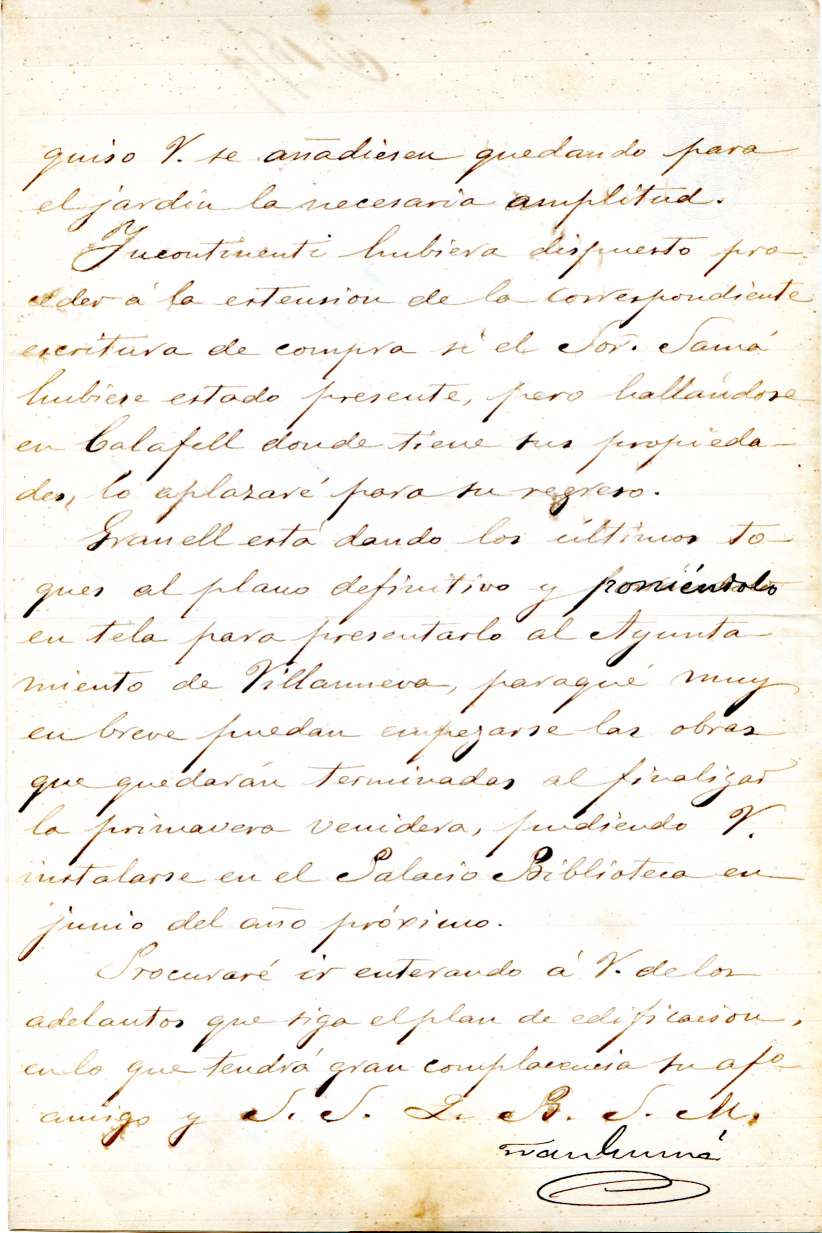 quiso V. se añadiesen quedando para
el jardin la necesaria amplitud.
Incontinenti hubiera dispuesto pro-
ceder á la estension de la correspondiente
escritura de compra si el Sor. Samá
hubiese estado presente, pero hallándose
en Calafell donde tiene sus propieda-
des, lo aplazaré para su regreso.
Granell está dando los últimos to-
ques al plano definitivo y poniéndolo
en tela para presentarlo al Ayunta-
miento de Villanueva, paraqué muy
en breve puedan empezarse las obras
que quedarán terminadas al finalizar
la primavera venidera, pudiendo V.
instalarse en el Palacio Biblioteca en
junio del año próximo.
Procuraré ir enterando á V. de los
adelantos que siga el plan de edificacion,
en lo que tendrá gran complacencia su afo
amigo y S. S. Q. B. S. M.
Gumá